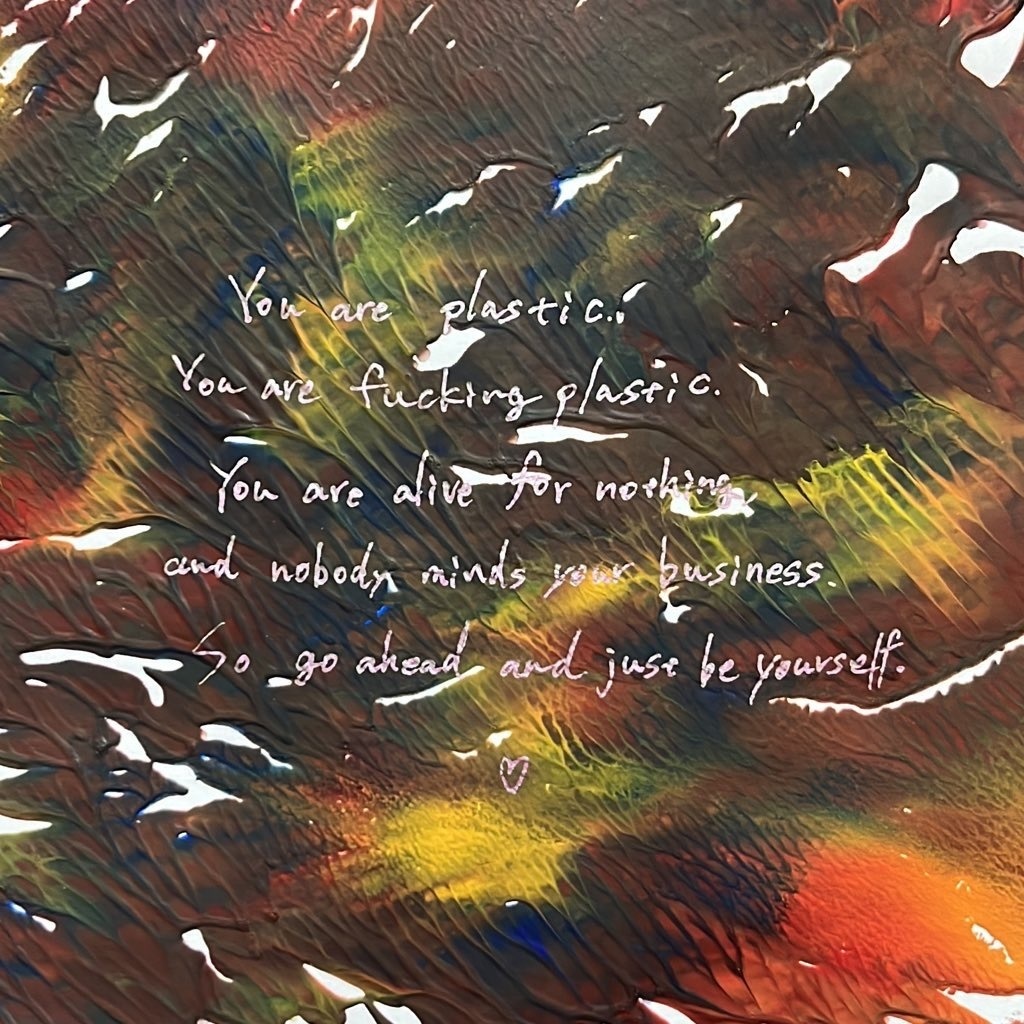 You are plastic.
You are fucking plastic.
You are alive for nothing,
and nobody minds your business.
So go ahead and just be yourself.
♡